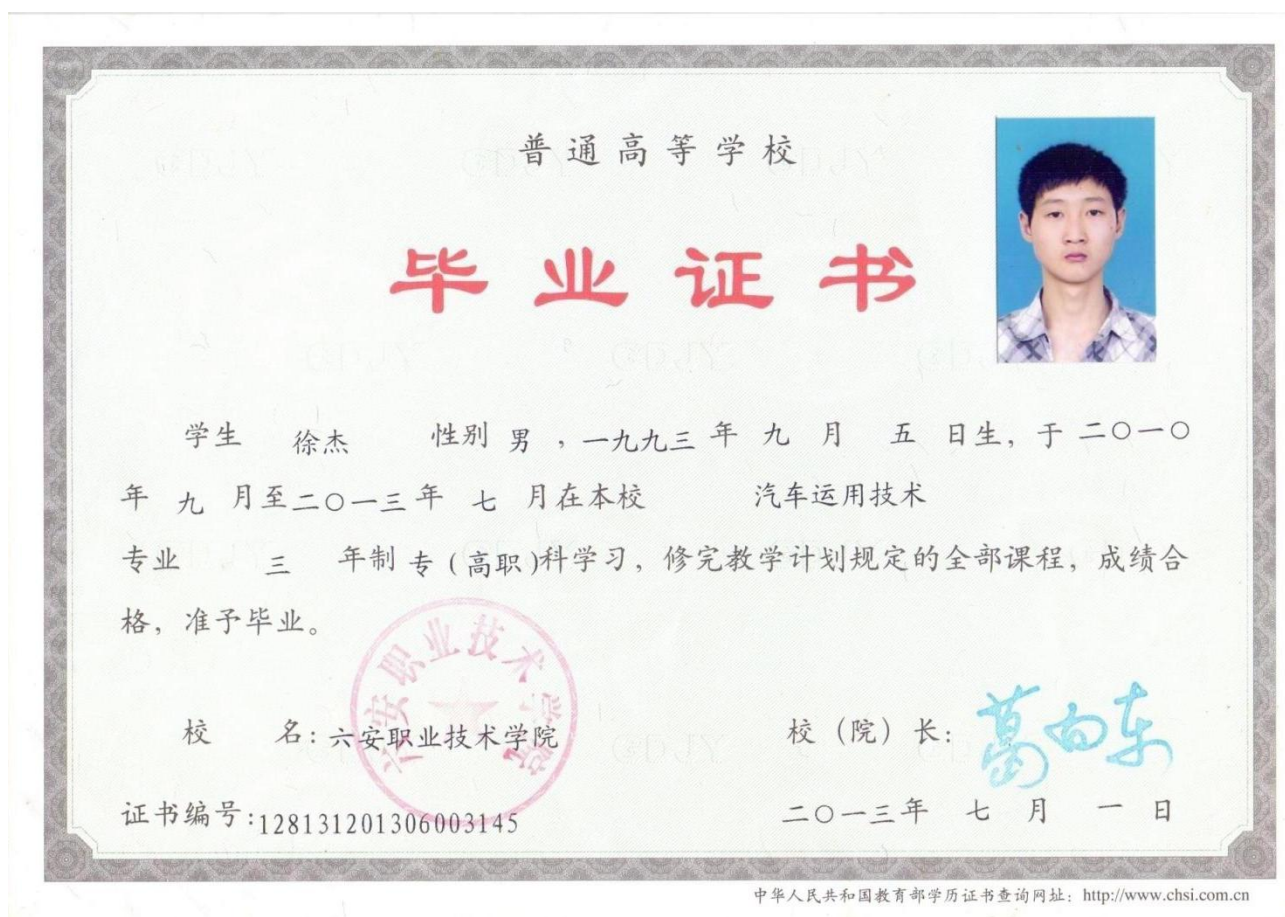 普通高等学校
毕业证书
学生 徐杰 性别 男 ，一九九三 年 九 月 五 日生，于 二〇一〇
年 九 月至二〇一三 年 七 月在本校 汽车运用技术
专业 三 年制 专（高职）科学习，修完教学计划规定的全部课程，成绩合
格，准予毕业。
六安职业技术学院
校 名：六安职业技术学院
校（院）长：葛向东
证书编号：128131201306003145
二〇一三年 七 月 一 日
中华人民共和国教育部学历证书查询网址：http://www.chsi.com.cn